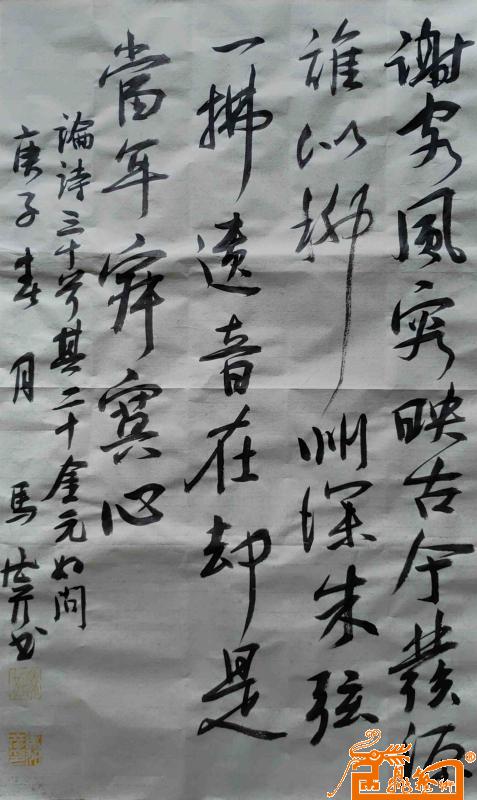 謝客風容映古今發源
誰似柳州深朱弦
一拂遺音在却是
當年寂寞心
論詩三十首其二十金元好問
庚子春月 馬 书